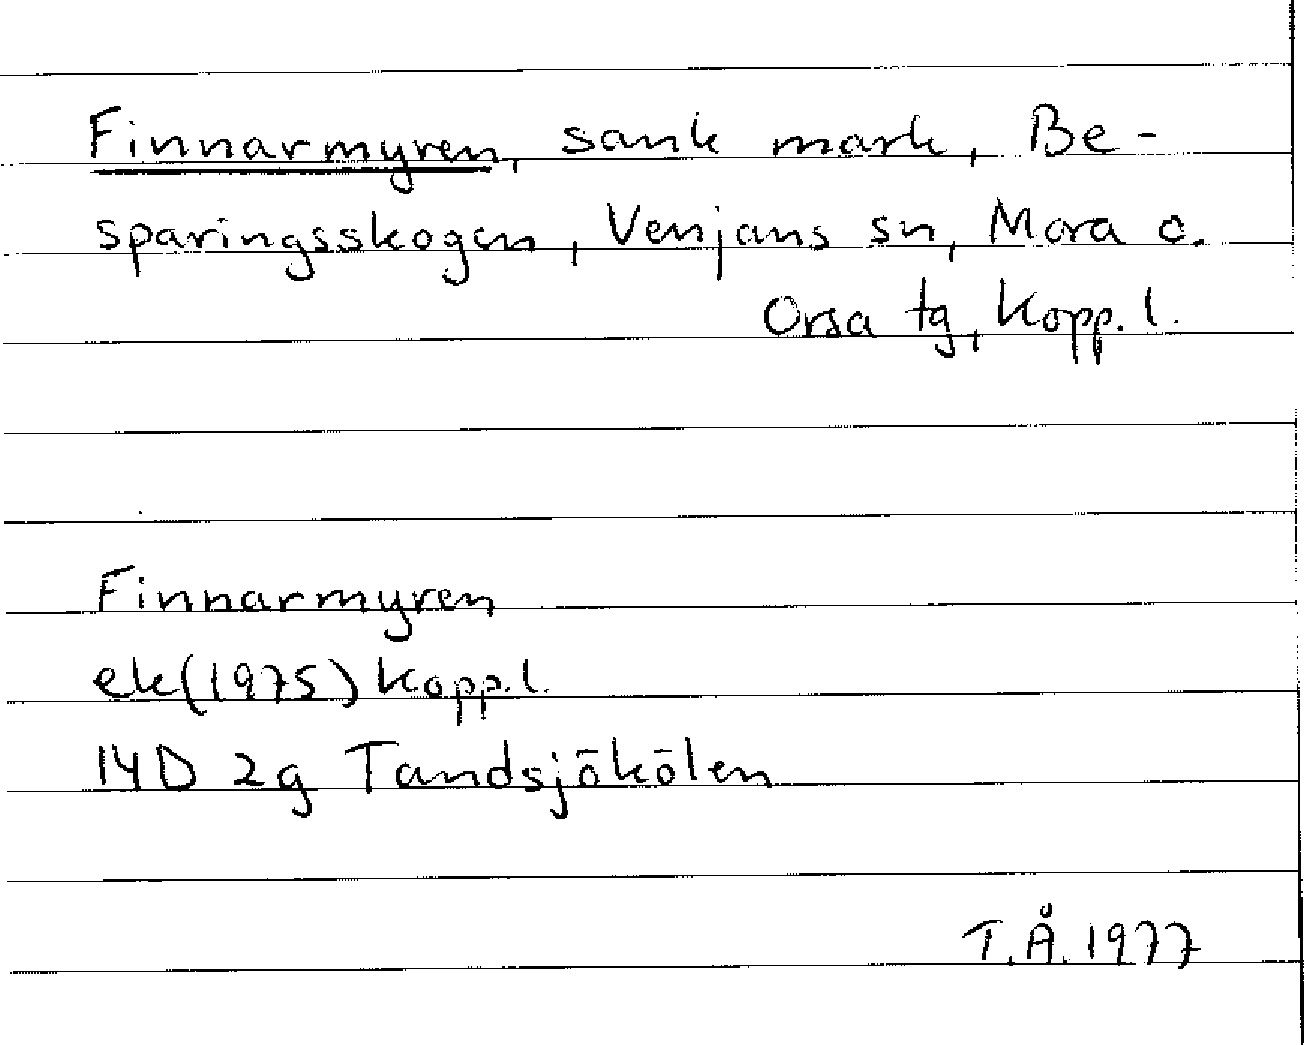 Finnarmyren, sank mark, Be-
sparingsskogen, Venjans sn, Mora o.
Orsa tg, Kopp. l.
Finnarmyren
ek(1975) Kopp.l.
14D 2g Tandsjökölen
T.Å. 1977